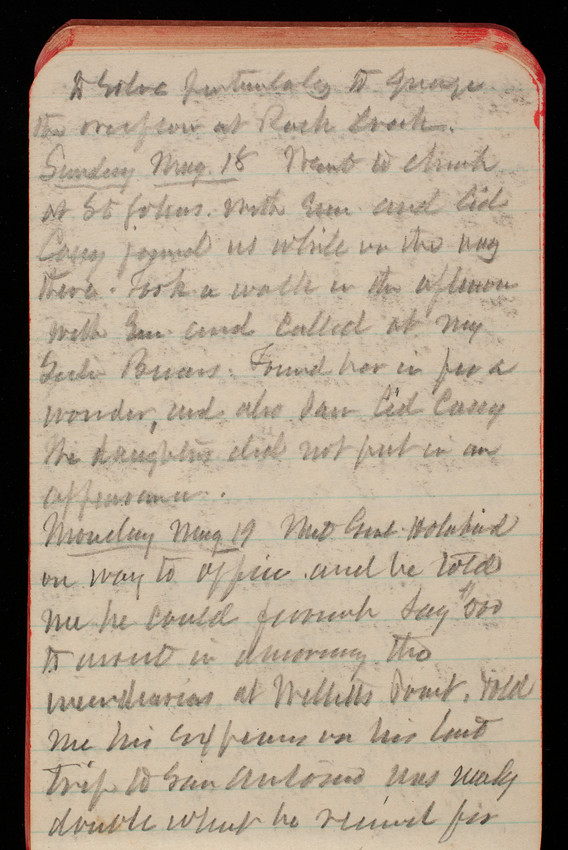 to solve to gauge
the overflow at Rock Creek.
Sunday May 18 Went to church
at St Johns. With Em and Col
Casey joined us while on the way
there. Took a walk in the afternoon
with Em and called at
Found her in for a
wonder, and also saw Col Casey
The daughters did not put in an
appearance.
Monday May 19 Met Genl Holabird
on way to office and he told
me he could furnish say $500
to assist in
at Willetts Point. Told
me his expenses on his last
trip to San Antonio was nearly
double what he received for